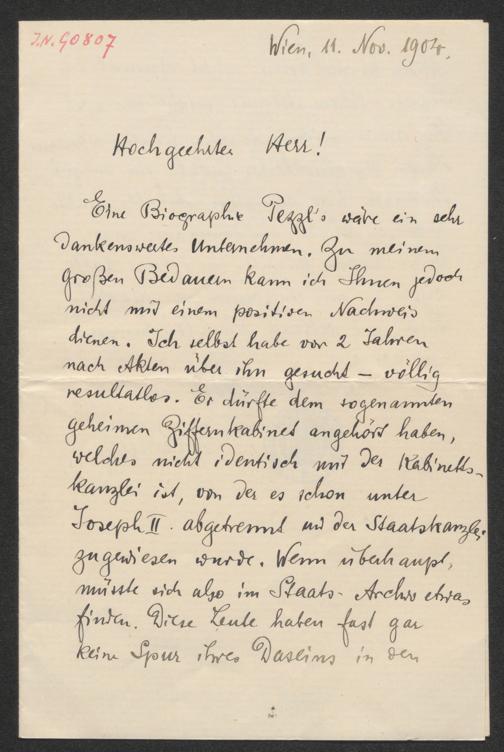 I.N. 90807
Wien, 11. Nov. 1904.
Hochgeehrter Herr!
Eine Biographie Pezzl's wäre ein sehr
dankenswertes Unternehmen. Zu meinem
großen Bedauern kann ich Ihnen jedoch
nicht mit einem positiven Nachweis
dienen. Ich selbst habe vor 2 Jahren
nach Akten über ihn gesucht – völlig
resultatlos. Er dürfte dem sogenannten
geheimen Ziffernkabinet angehört haben,
welches nicht identisch mit der Kabinetts-
kanzlei ist, von der es schon unter
Joseph II. abgetrennt und der Staatskanzlei
zugewiesen wurde. Wenn überhaupt,
müsste sich also im Staats-Archiv etwas
finden. Diese Leute haben fast gar
keine Spur ihres Daseins in den